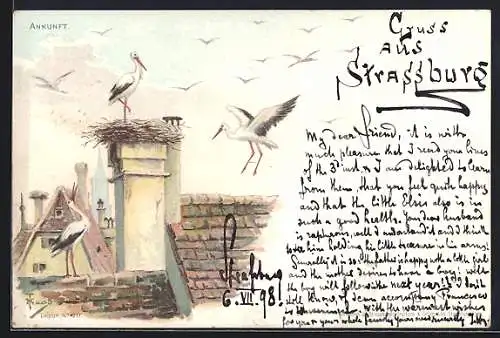 ANKUNFT.
Gruss
aus
Strassburg
My dear friend, it is with
much pleasure that I read your lines
of the 3d inst, I am delighted to learn
from them, that you feel quite happy
and that the little Elsis also is in
such a good health. Your dear husband
is rapharus, well I understand it and I think
to see him holding his little treasure in his arms!
Generally it is so, the father is happy with a little girl
and the mother desires to have a boy; well
the boy will follow the next year!
know, if I can accompany Francisco
to With the warmest wishes
for you or your whole family Yours sincerely
Strassburg
6. VII. 98.